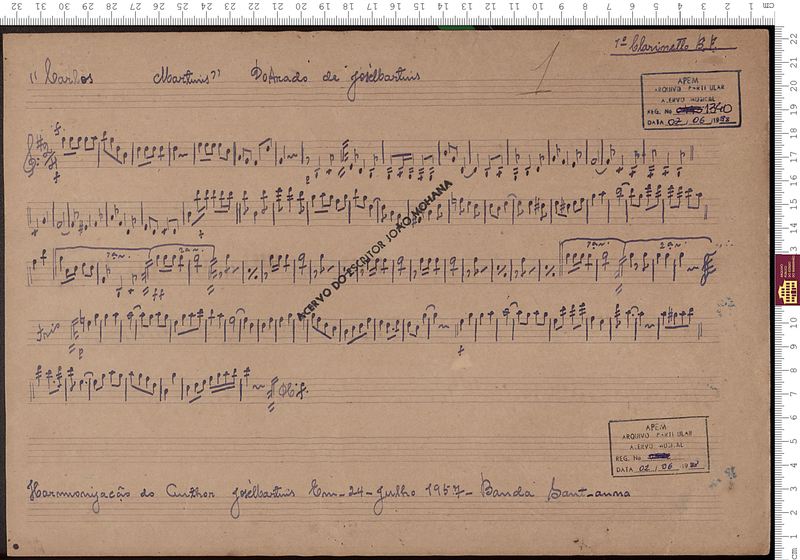 1º Clarinetto B♭
"Carlos Martins" Dobrado de José Martins
1
APEM
ARQUIVO PARTICULAR
ACERVO MUSICAL
REG. No 1340
DATA 02/06/19
1ª 2ª
1ª 2ª
Trio
ACERVO DO ESCRITOR JOÃO MOHANA
APEM
ARQUIVO PARTICULAR
ACERVO MUSICAL
REG. No
DATA 02/06/19
Harmonização do Author José Martins Em-24-Julho 1957-Banda Sant-anna